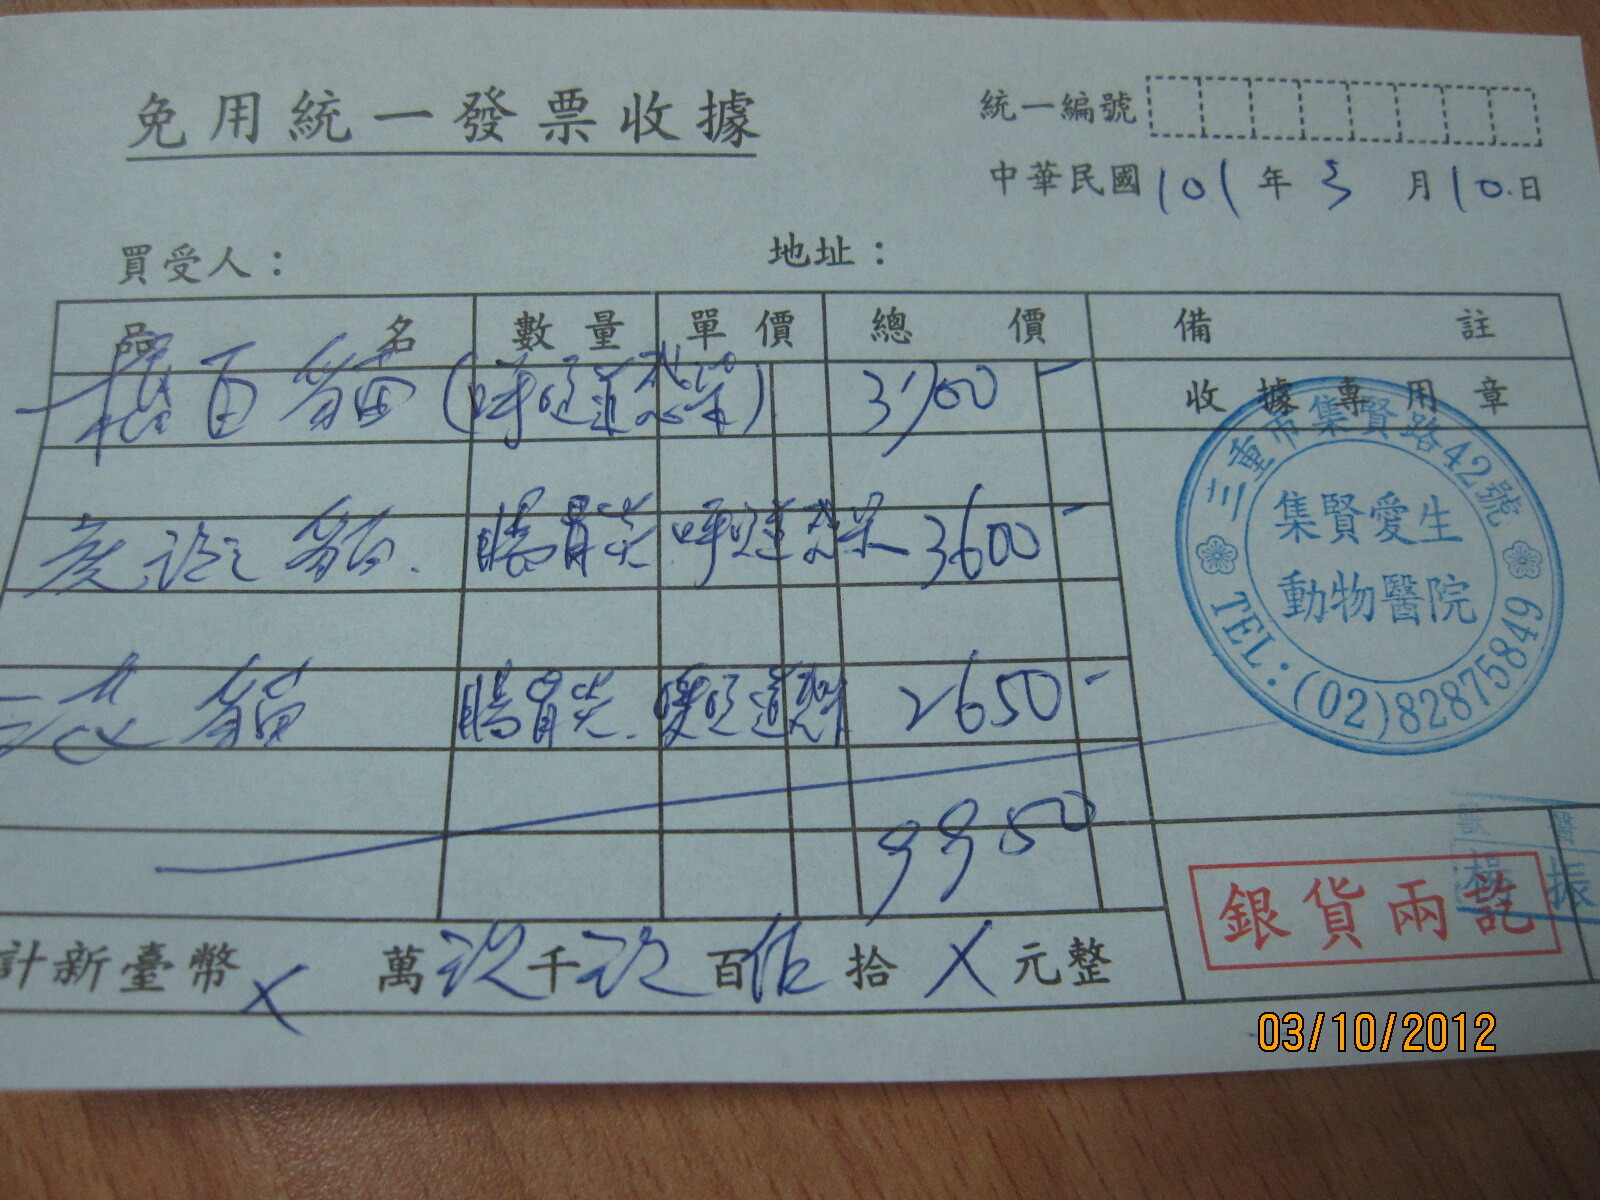 免用統一發票收據
統一編號
中華民國101年3月10日
買受人： 地址：
品名 數量 單價 總價 備註
貓(呼吸道感染) 3700
收據專用章
貓 腸胃炎 呼吸道感染 3600
貓 腸胃炎 呼吸道 2650
三重市集賢路42號
集賢愛生
動物醫院
TEL:(02)82875849
9950
計新臺幣X萬玖千玖百伍拾X元整
銀貨兩訖
03/10/2012